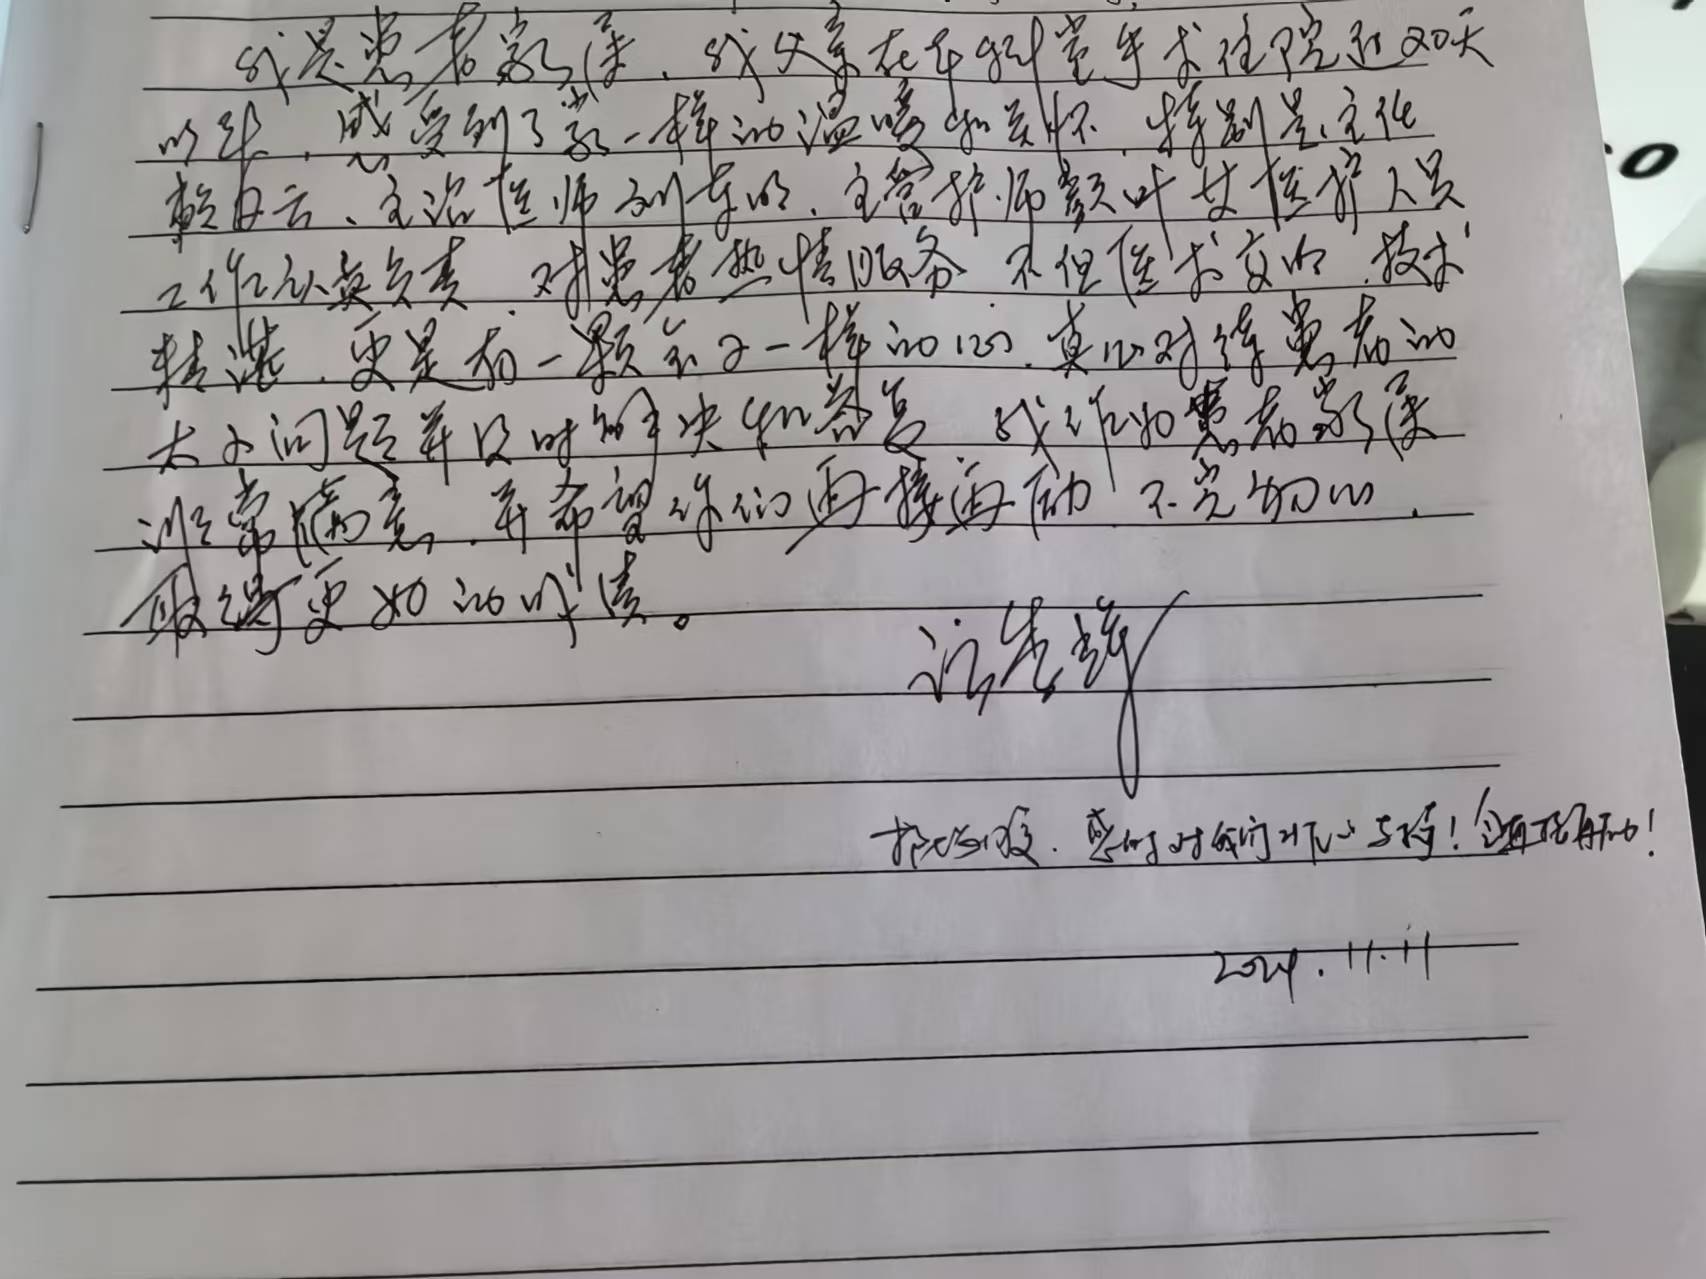 我是患者家属，我父亲在华科堂手术住院近20天
以来，感受到了家一样的温暖和关怀，特别是主任
赖日云、主治医师刘东明、主管护师颜叶女医护人员
工作认真负责，对患者热情服务，不但医术高明，技术
精湛，更是有一颗金子一样的心，真心对待患者的
大小问题并及时解决和答复，我作为患者家属
非常满意，并希望你们再接再励，不完初心，
取得更好的成绩。
感谢对我们 再接再励！
2024.11.11